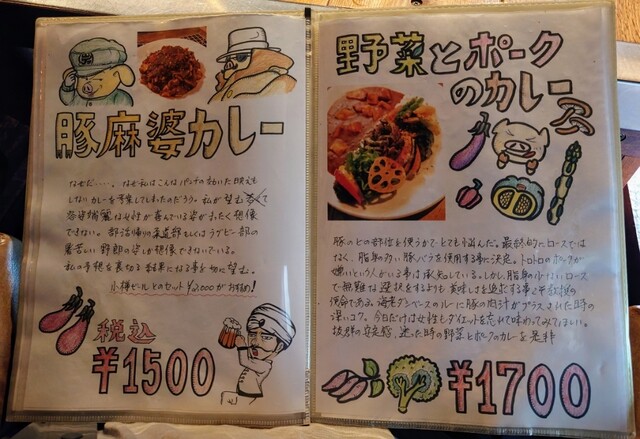 豚麻婆カレー
なぜだ…。なぜ私はこんなパンチの効いた映えも
しないカレーを考案してしまったのだろう。私が望む若くて
容姿端麗な女性が喜んでいる姿がまったく想像
できない。部活帰りの柔道部もしくはラグビー部の
暑苦しい野郎の姿しか想像できないでいる。
私の予想を裏切る結果になる事を切に望む。
小樽ビールとのセット¥2,000がおすすめ!
税込
¥1500
野菜とポーク
のカレー
豚のどの部位を使うかで、とても悩んだ。最終的にロースでは
なく、脂身の多い豚バラを使用する事に決定。トロトロのポークが
嫌いという人がいる事は承知している。しかし、脂身の少ないロース
で無難な選択をするよりも美味しさを追求する事こそ
使命である。海老ダシベースのルーに豚の肉汁がプラスされた時の
深いコク。今日だけは女性もダイエットを忘れて味わってみてほしい。
抜群の安定感、迷った時の野菜とポークのカレーを是非
¥1700